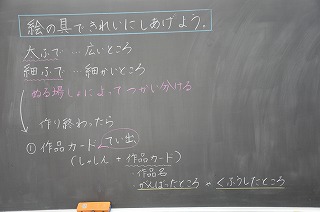 絵の具できれいにしあげよう。
大ふで…広いところ
細ふで…細かいところ
ぬる場しょによってつかい分ける
作り終わったら
①作品カードてい出
(しゃしん+作品カード)
作品名
がんばったところ・くふうしたところ